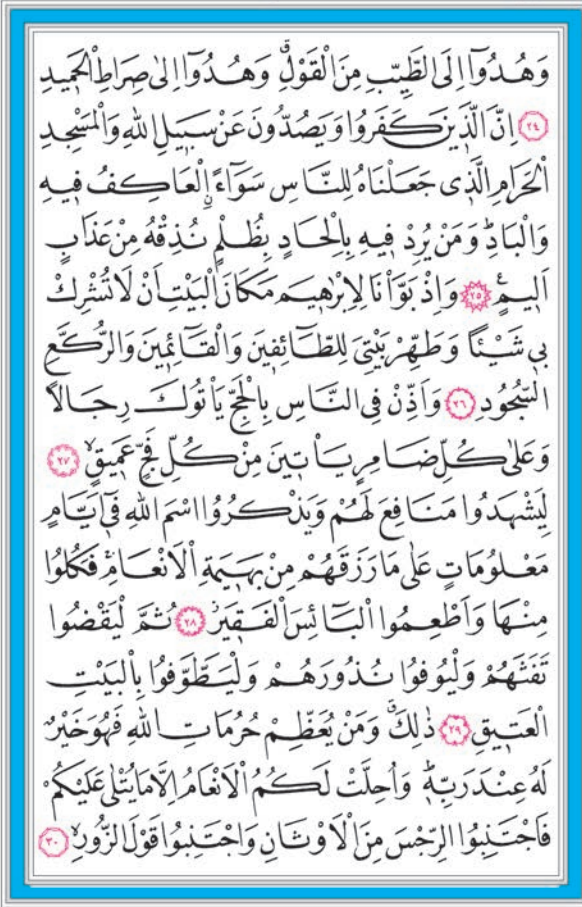 وَهُدُٓوا اِلَى الطَّيِّبِ مِنَ الْقَوْلِۚ وَهُدُٓوا اِلٰى صِرَاطِ الْحَم۪يدِ
﴿٢٤﴾ اِنَّ الَّذ۪ينَ كَفَرُوا وَيَصُدُّونَ عَنْ سَب۪يلِ اللّٰهِ وَالْمَسْجِدِ
الْحَرَامِ الَّذ۪ي جَعَلْنَاهُ لِلنَّاسِ سَوَٓاءًۨ الْعَاكِفُ ف۪يهِ
وَالْبَادِۜ وَمَنْ يُرِدْ ف۪يهِ بِاِلْحَادٍ بِظُلْمٍ نُذِقْهُ مِنْ عَذَابٍ
اَل۪يمٍ۟ ﴿٢٥﴾ وَاِذْ بَوَّأْنَا لِاِبْرٰه۪يمَ مَكَانَ الْبَيْتِ اَنْ لَا تُشْرِكْ
ب۪ي شَيْـًٔا وَطَهِّرْ بَيْتِيَ لِلطَّٓائِف۪ينَ وَالْقَٓائِم۪ينَ وَالرُّكَّعِ
السُّجُودِ ﴿٢٦﴾ وَاَذِّنْ فِي النَّاسِ بِالْحَجِّ يَأْتُوكَ رِجَالًا
وَعَلٰى كُلِّ ضَامِرٍ يَأْت۪ينَ مِنْ كُلِّ فَجٍّ عَم۪يقٍۙ ﴿٢٧﴾
لِيَشْهَدُوا مَنَافِعَ لَهُمْ وَيَذْكُرُوا اسْمَ اللّٰهِ ف۪ٓي اَيَّامٍ
مَعْلُومَاتٍ عَلٰى مَا رَزَقَهُمْ مِنْ بَه۪يمَةِ الْاَنْعَامِۚ فَكُلُوا
مِنْهَا وَاَطْعِمُوا الْبَٓائِسَ الْفَق۪يرَۘ ﴿٢٨﴾ ثُمَّ لْيَقْضُوا
تَفَثَهُمْ وَلْيُوفُوا نُذُورَهُمْ وَلْيَطَّوَّفُوا بِالْبَيْتِ
الْعَت۪يقِ ﴿٢٩﴾ ذٰلِكَۗ وَمَنْ يُعَظِّمْ حُرُمَاتِ اللّٰهِ فَهُوَ خَيْرٌ
لَهُ عِنْدَ رَبِّه۪ۜ وَاُحِلَّتْ لَكُمُ الْاَنْعَامُ اِلَّا مَا يُتْلٰى عَلَيْكُمْ
فَاجْتَنِبُوا الرِّجْسَ مِنَ الْاَوْثَانِ وَاجْتَنِبُوا قَوْلَ الزُّورِۙ ﴿٣٠﴾